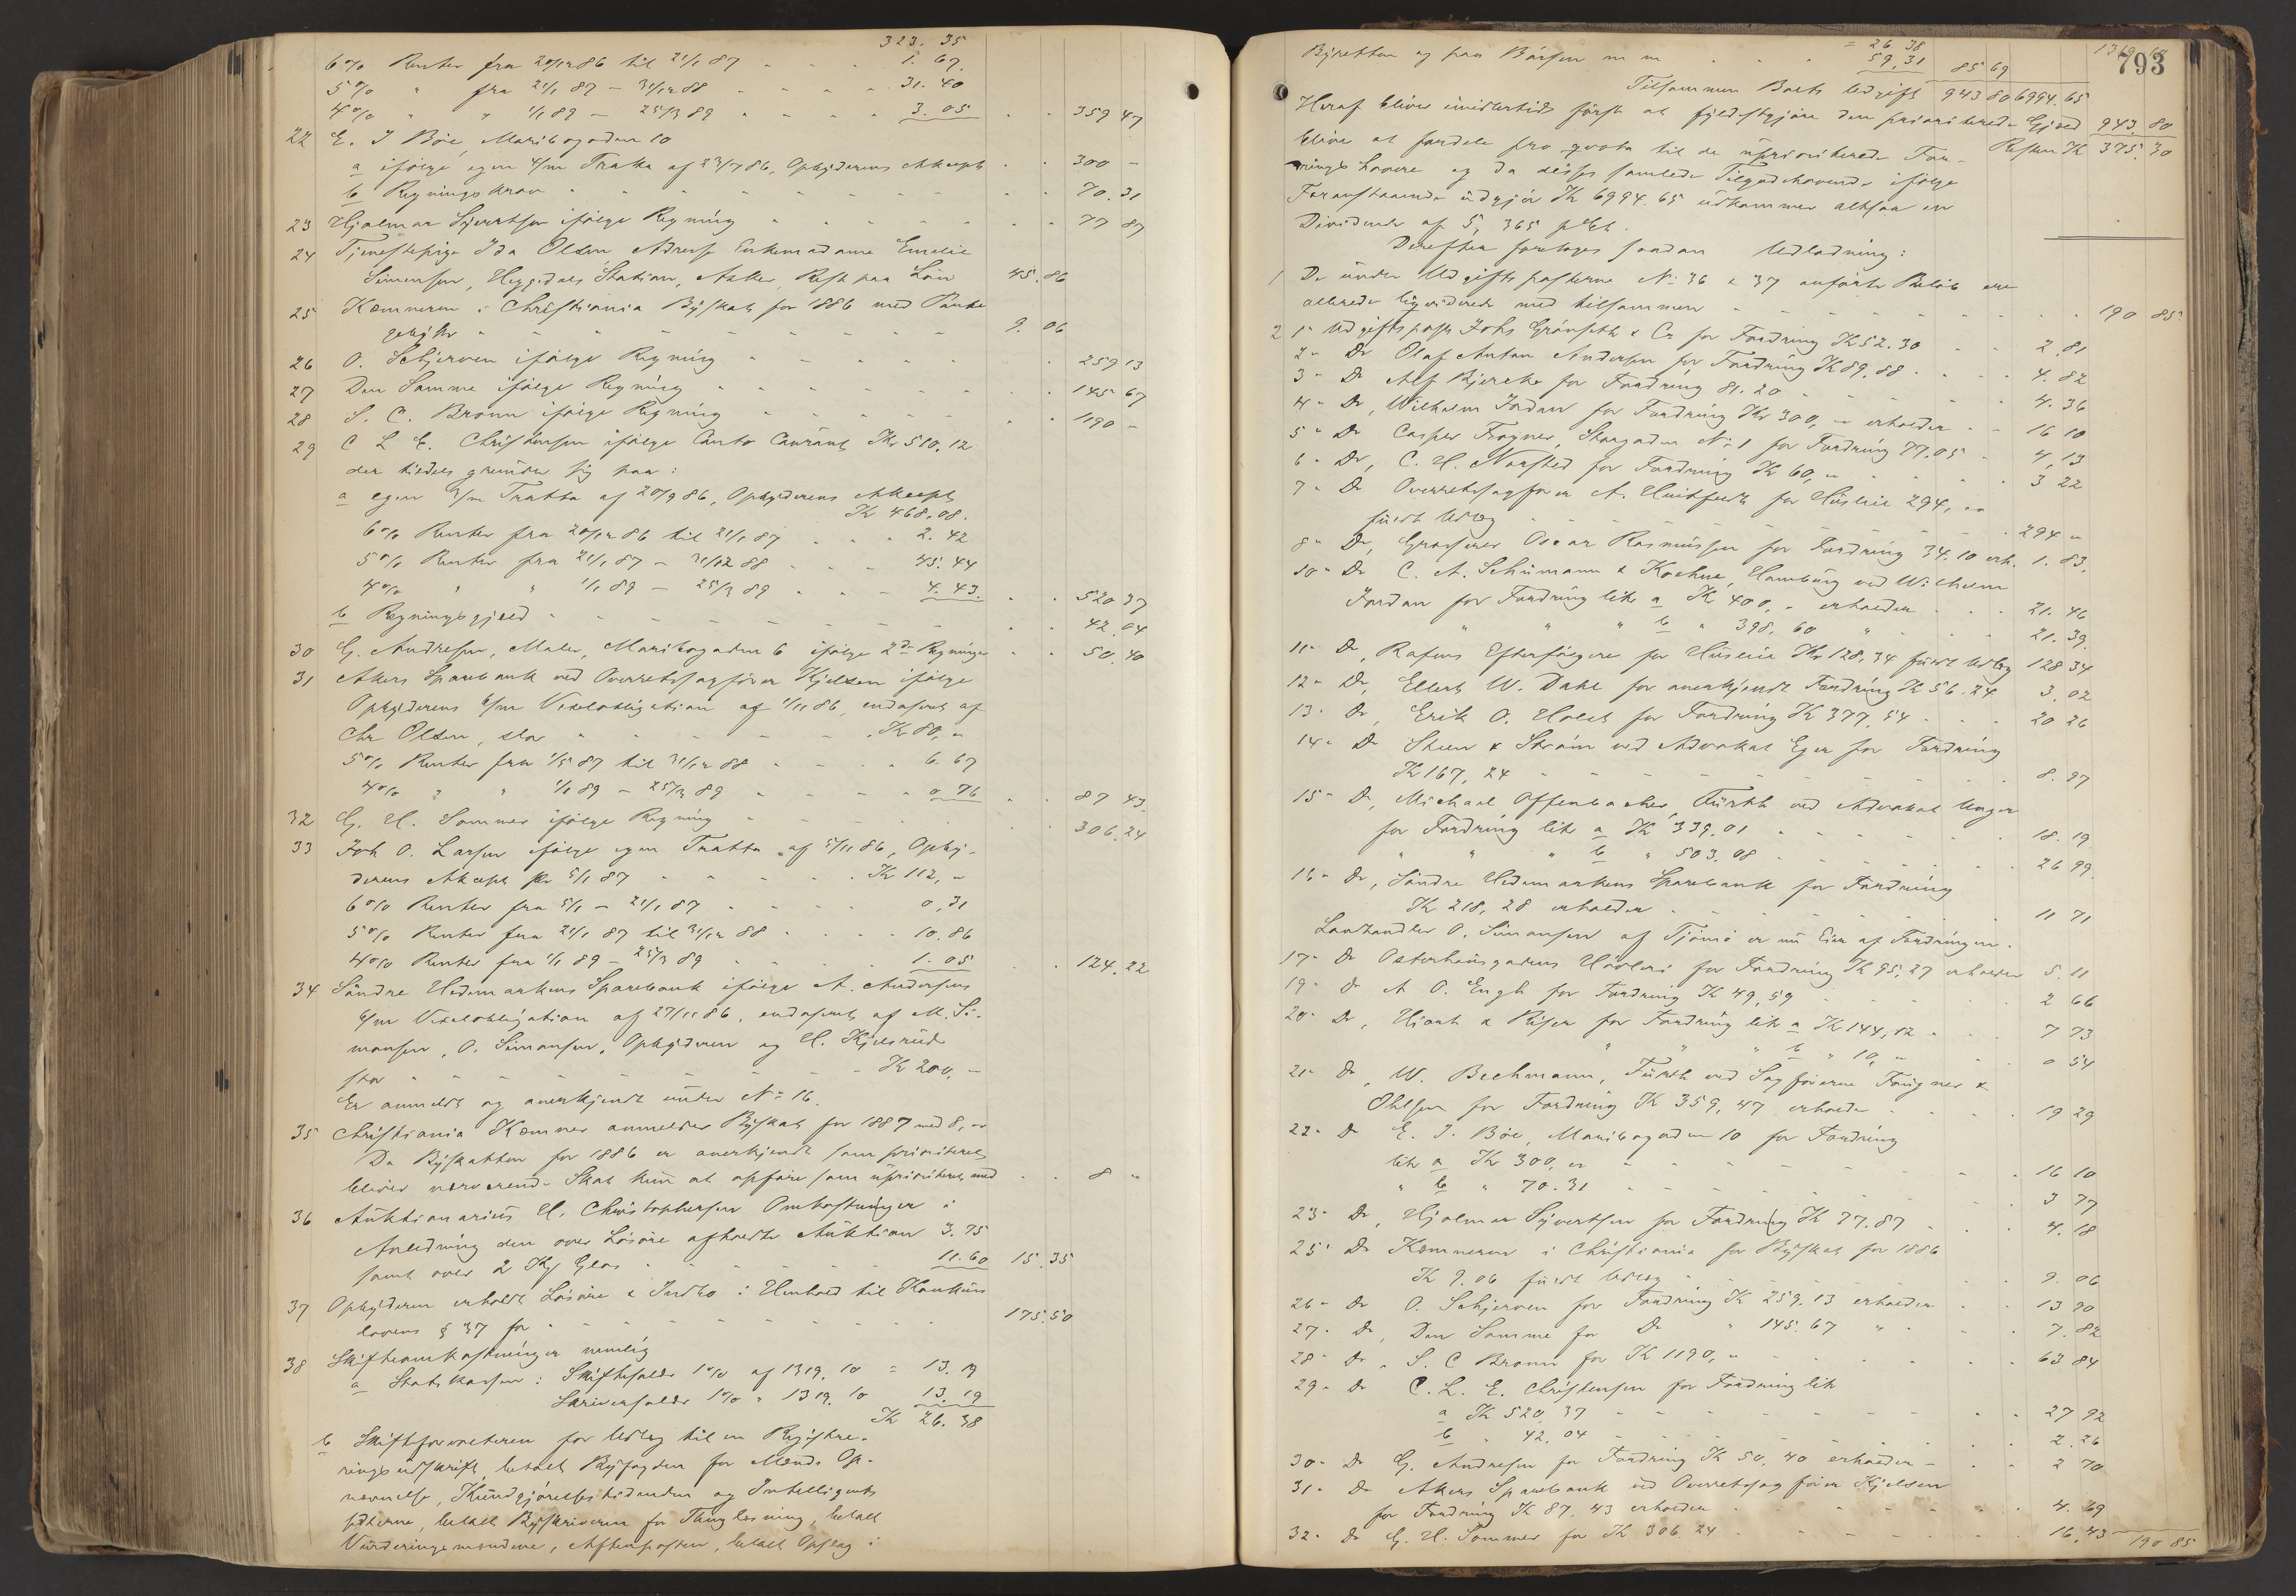 323. 35
6% Renter fra 20/12 86 til 21/1 87 - - - 1. 67.
5% " fra 21/1 87 - 31/12 88 - - - 31. 40
4% " " 1/1 89 - 25/3 89 - - - 3. 05 - - 359 47
22 E. J Böe, Maribogaden 10
a ifölge egen 4/m Tratta af 23/7 86, Opbyderens Akcept - - 300 -
b Regningskrav - - - 70. 31
23 Hjalmar Syvertsen ifölge Regning - - - 77 87
24 Tjenestepige Ida Olsen Adresse Enkemadame Emilie
Simensen, Heggedals Station, Asker, Rest paa Lön 45. 86
25 Kæmneren i Christiania Byskat for 1886 med Pante
gebyhr - - - 9. 06
26 O. Schjerven ifölge Regning - - - 259 13
27 Den Samme ifölge Regning - - - 145 67
28 S. C. Bronn ifölge Regning - - - 1190 -
29 C L E. Christensen ifölge Conto Courant Kr 510. 12
der tildels grunder sig paa:
a egen 3/m Tratta af 20/9 86, Opbyderens Akcept
Kr 468. 08.
6% Renter fra 20/12 86 til 21/1 87 - - - 2. 42
5% Renter fra 21/1 87 - 31/12 88 - - - 45. 44
4% " " 1/1 89 - 25/3 89 - - - 4. 43. - - 520 37
b Regningsgjæld - - - 42. 04
30 G. Andresen, Maler, Maribogaden 6 ifölge 2de Regninger - - 50. 40
31 Akers Sparebank ved Overretssagförer Kjelsen ifölge
Opbyderens 6/m Vexelobligation af 1/11 86, endosseret af
Chr Olsen, stor - - - Kr 80, "
5% Renter fra 1/5 87 til 31/12 88 - - - 6. 67
4% " " 1/1 89 - 25/3 89 - - - 0. 76 - - 87 43.
32 G. H. Sommer ifölge Regning - - - 306. 24
33 Joh O. Larsen ifölge egen Tratta af 5/11 86, Opby-
derens Akcept pr 5/1 87 - - - Kr 112, "
6% Renter fra 5/1 - 21/1 87 - - - 0, 31
5% Renter fra 21/1 87 til 31/12 88 - - - 10. 86
4% Renter fra 1/1 89 - 25/3 89 - - - 1. 05 - - 124. 22
34 Söndre Hedemarkens Sparebank ifölge A. Andersens
6/m Vexelobligation af 27/11 86, endosseret af M. Si-
monsen, O. Simonsen, Opbyderen og H. Kjelsrud
stor - - - Kr 200, -
Er anmeldt og anerkjendt under No 16.
35 Christiania Kæmner anmelder Byskat for 1887 med 8, "
Da Byskatten for 1886 er anerkjendt som prioriteret,
bliver nærværende Skat kun at opföre som uprioriteret med - - 8 "
36 Auktionarius H. Christophersen Omkostninger i
Anledning den over Lösöre afholdte Auktion 3. 75
samt over 2 Kg Glas - - - 11. 60 15. 35
37 Opbyderen erholdt Lösöre & Indbo i Henhold til Konkurs
lovens § 37 for - - - 175. 50
38 Skifteomkostninger nemlig
a Statskassen: Skiftesalær 1% af 1319. 10 = 13. 19
Skriversalær 1% " 1319. 10 13. 19
Kr 26. 38
b Skifteforvalteren for Udlæg til en Registre-
ringsudskrift, betalt Byfogden for Mænds Op-
nævnelse, Kundgjörelsestidenden og Intelligents
sedlerne, betalt Byskriveren for Thinglæsning, betalt
Vurderingsmændene, Aftenposten, betalt Opslag i
793
Byretten og paa Börsen m m - - - = 26. 38
59. 31 85 69
Tilsammen Boets Udgift 943 80 6994. 65
Heraf bliver imidlertid först at fyldestgjöre den prioriterede Gjæld 943. 80
Resten Kr 375. 30
blive at fordele pro quota til de uprioriterede For-
drings havere og da disses samlede Tilgodehavende ifölge
Foranstaaende udgjör Kr 6994. 65 udkommer altsaa en
Dividende af 5, 365 pCt.
Derefter foretages saadan Udlodning:
1 De under Udgiftsposterne No 36 & 37 anförte Belöb ere
allerede liqviderede med tilsammen - - - 190 85
2 1" Udgiftspost Johs Grönseth & Co for Fordring Kr 52. 30 - - 2. 81
2" Do Olaf Anton Andersen for Fordring Kr 89. 88 - - 4. 82
3" Do Alf Bjercke for Fordring 81. 20 - - - 4. 36
4" Do, Wilhelm Jordan for Fordring Kr 300, " erholder - - 16 10
5" Do Casper Frogner, Storgaden No 1 for Fordring 77. 05 - 4, 13
6" Do, C. H. Narsted for Fordring Kr 60, " - - - 3 22
7" Do Overretssagförer A. Huitfeldt for Husleie 294, "
fuldt Udlæg - - - 294 "
8" Do, Grosserer Oscar Rasmussen for Fordring 34. 10 erh. 1. 83.
10" Do C. A. Schumann & Koehne, Hamburg ved Wilhelm
Jordan for Fordring litr a Kr 400, - erholder - - - 21. 46
" " " b " 398. 60 " - - 21. 39.
11" Do, Rafens Efterfölgere for Husleie Kr 128, 34 fuldt Udlæg 128 34
12" Do, Ellert W. Dahl for anerkjendt Fordring Kr 56. 24 3. 02
13" Do, Erik O. Holst for Fordring Kr 377. 54 - - - 20 26
14" Do Steen & Ström ved Advokat Eger for Fordring
Kr 167, 24 - - - 8. 97
15" Do, Michael Offenbacher, Fürth ved Advokat Unger
for Fordring litr a Kr 339. 01 - - - 18. 19
" " " b " 503. 08 - - - 26 99.
16" Do, Söndre Hedemarkens Sparebank for Fordring
Kr 218, 28 erholder - - - 11 71
Landhandler O. Simonsen af Tjömö er nu Eier af Fordringen.
17" Do Osterhausgadens Hövleri for Fordring Kr 95. 27 erholder 5. 11
19" Do A O. Engh for Fordring Kr 49, 59 - - - 2 66
20" Do, Hiorth & Riser for Fordring litr a Kr 144, 12 - - 7 73
" " " b " 10, " - - 0 54
21" Do, W. Bechmann, Fürth ved Sagförerne Fougner &
Ohlsen for Fordring Kr 359, 47 erholder - - - 19 29
22" Do E. J. Böe, Maribogaden 10 for Fordring
litr a Kr 300, " - - - 16 10
" b " 70. 31 - - - 3 77
23" Do, Hjalmar Syvertsen for Fordring Kr 77. 87 - - - 4. 18
25" Do Kæmneren i Christiania for Byskat for 1886
Kr 9. 06 fuldt Udlæg - - - 9. 06
26" Do O. Schjerven for Fordring Kr 259. 13 erholder - - 13 90
27" Do, Den Samme for Do " 145. 67 " - - 7. 82
28" Do, S. C Bronn for Kr 1190, " - - - 63 84
29" Do C. L. E. Christensen for Fordring litr
a Kr 520. 37 - - - 27 92
b " 42. 04 - - - 2. 26
30" Do G. Andresen for Fordring Kr 50, 40 erholder - - - 2 70
31" Do Akers Sparebank ved Overretssagförer Kjelsen
for Fordring Kr 87. 43 erholder - - - 4. 69
32" Do G. H. Sommer for Kr 306. 24 - - - 16, 43
190 85